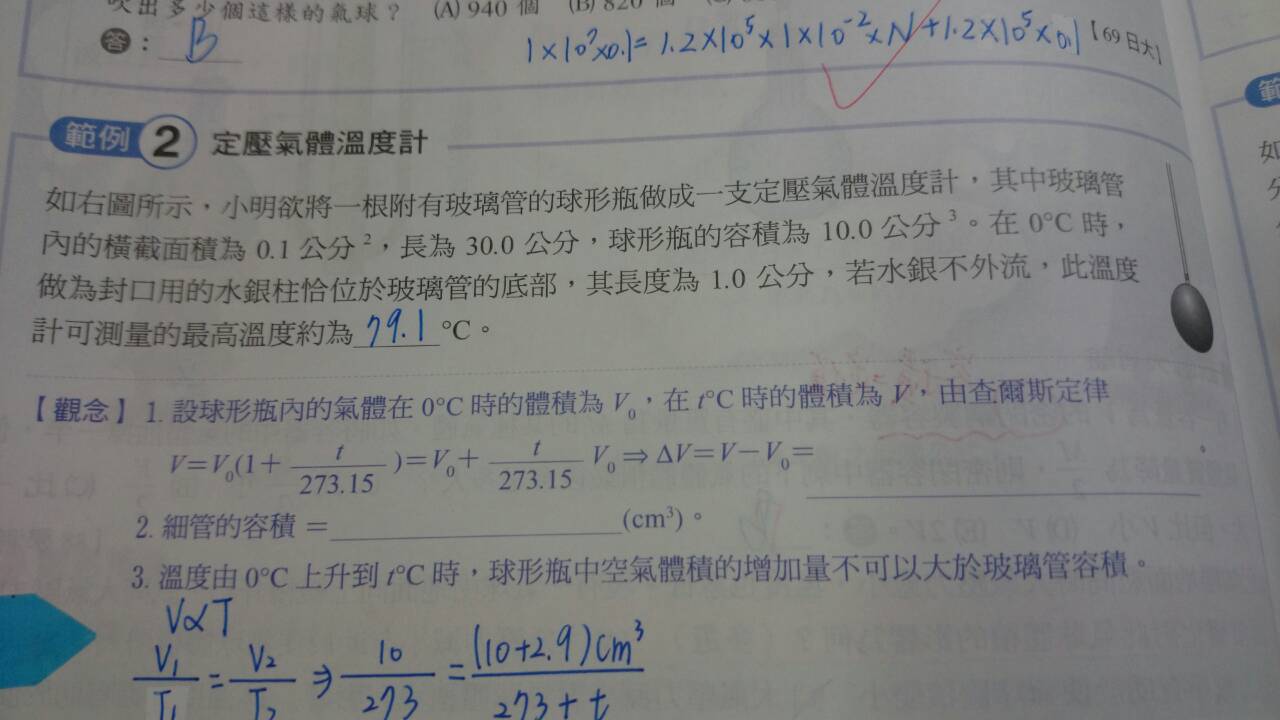 吹出多少個這樣的氣球？ (A) 940 個 (B) 820 個
答： B
1×10⁷×0.1=1.2×10⁵×1×10⁻²×N+1.2×10⁵×0.1【69 日大】
範例 2 定壓氣體溫度計
如右圖所示，小明欲將一根附有玻璃管的球形瓶做成一支定壓氣體溫度計，其中玻璃管
內的橫截面積為 0.1 公分²，長為 30.0 公分，球形瓶的容積為 10.0 公分³。在 0°C 時，
做為封口用的水銀柱恰位於玻璃管的底部，其長度為 1.0 公分，若水銀不外流，此溫度
計可測量的最高溫度約為 79.1 °C。
【觀念】1. 設球形瓶內的氣體在 0°C 時的體積為 V₀，在 t°C 時的體積為 V，由查爾斯定律
V=V₀(1+ t/273.15 )=V₀+ t/273.15 V₀⇒ΔV=V−V₀=＿＿＿。
2. 細管的容積 =＿＿＿(cm³)。
3. 溫度由 0°C 上升到 t°C 時，球形瓶中空氣體積的增加量不可以大於玻璃管容積。
V∝T
V₁/T₁ = V₂/T₂ ⇒ 10/273 = (10+2.9)cm³/273+t
範
如